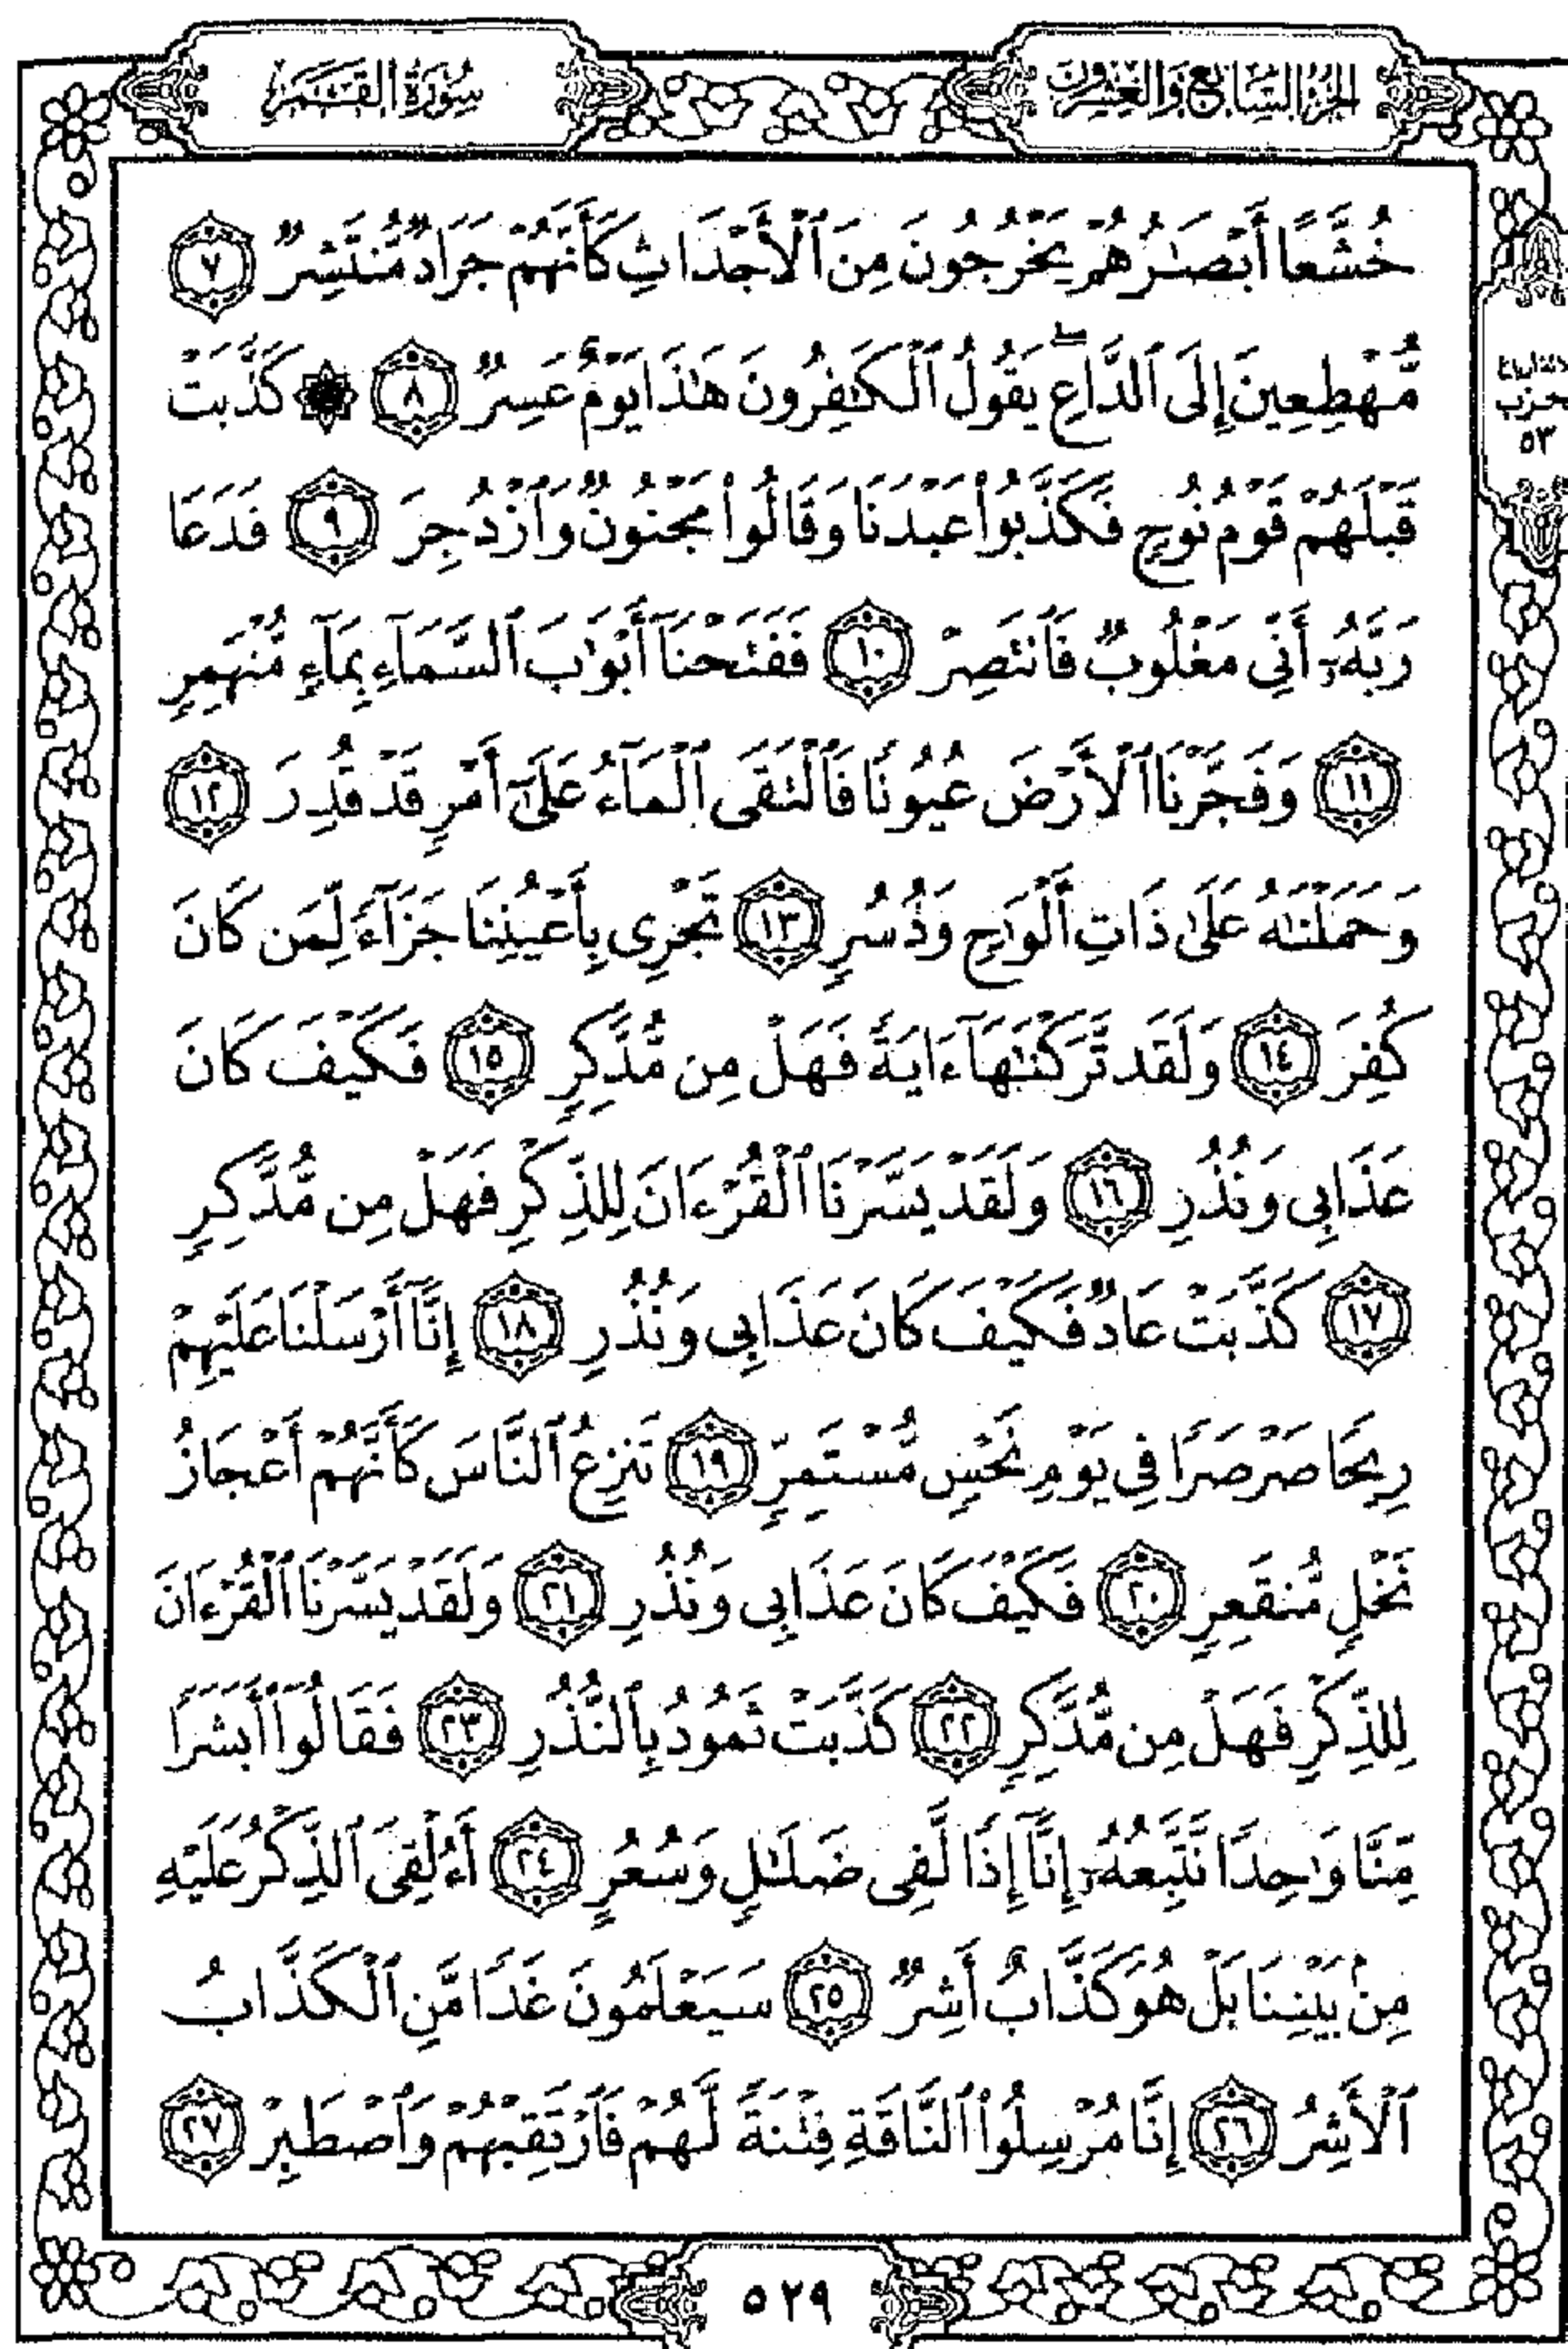 الجزء السابع والعشرون
سورة القمر
خُشَّعًا أَبْصَٰرُهُمْ يَخْرُجُونَ مِنَ ٱلْأَجْدَاثِ كَأَنَّهُمْ جَرَادٌ مُّنتَشِرٌ ٧
مُّهْطِعِينَ إِلَى ٱلدَّاعِ ۖ يَقُولُ ٱلْكَٰفِرُونَ هَٰذَا يَوْمٌ عَسِرٌ ٨ ۞ كَذَّبَتْ
قَبْلَهُمْ قَوْمُ نُوحٍ فَكَذَّبُوا۟ عَبْدَنَا وَقَالُوا۟ مَجْنُونٌ وَٱزْدُجِرَ ٩ فَدَعَا
رَبَّهُۥٓ أَنِّى مَغْلُوبٌ فَٱنتَصِرْ ١٠ فَفَتَحْنَآ أَبْوَٰبَ ٱلسَّمَآءِ بِمَآءٍ مُّنْهَمِرٍ
١١ وَفَجَّرْنَا ٱلْأَرْضَ عُيُونًا فَٱلْتَقَى ٱلْمَآءُ عَلَىٰٓ أَمْرٍ قَدْ قُدِرَ ١٢
وَحَمَلْنَٰهُ عَلَىٰ ذَاتِ أَلْوَٰحٍ وَدُسُرٍ ١٣ تَجْرِى بِأَعْيُنِنَا جَزَآءً لِّمَن كَانَ
كُفِرَ ١٤ وَلَقَد تَّرَكْنَٰهَآ ءَايَةً فَهَلْ مِن مُّدَّكِرٍ ١٥ فَكَيْفَ كَانَ
عَذَابِى وَنُذُرِ ١٦ وَلَقَدْ يَسَّرْنَا ٱلْقُرْءَانَ لِلذِّكْرِ فَهَلْ مِن مُّدَّكِرٍ
١٧ كَذَّبَتْ عَادٌ فَكَيْفَ كَانَ عَذَابِى وَنُذُرِ ١٨ إِنَّآ أَرْسَلْنَا عَلَيْهِمْ
رِيحًا صَرْصَرًا فِى يَوْمِ نَحْسٍ مُّسْتَمِرٍّ ١٩ تَنزِعُ ٱلنَّاسَ كَأَنَّهُمْ أَعْجَازُ
نَخْلٍ مُّنقَعِرٍ ٢٠ فَكَيْفَ كَانَ عَذَابِى وَنُذُرِ ٢١ وَلَقَدْ يَسَّرْنَا ٱلْقُرْءَانَ
لِلذِّكْرِ فَهَلْ مِن مُّدَّكِرٍ ٢٢ كَذَّبَتْ ثَمُودُ بِٱلنُّذُرِ ٢٣ فَقَالُوٓا۟ أَبَشَرًا
مِّنَّا وَٰحِدًا نَّتَّبِعُهُۥٓ إِنَّآ إِذًا لَّفِى ضَلَٰلٍ وَسُعُرٍ ٢٤ أَءُلْقِىَ ٱلذِّكْرُ عَلَيْهِ
مِنۢ بَيْنِنَا بَلْ هُوَ كَذَّابٌ أَشِرٌ ٢٥ سَيَعْلَمُونَ غَدًا مَّنِ ٱلْكَذَّابُ
ٱلْأَشِرُ ٢٦ إِنَّا مُرْسِلُوا۟ ٱلنَّاقَةِ فِتْنَةً لَّهُمْ فَٱرْتَقِبْهُمْ وَٱصْطَبِرْ ٢٧
حزب
٥٣
٥٢٩